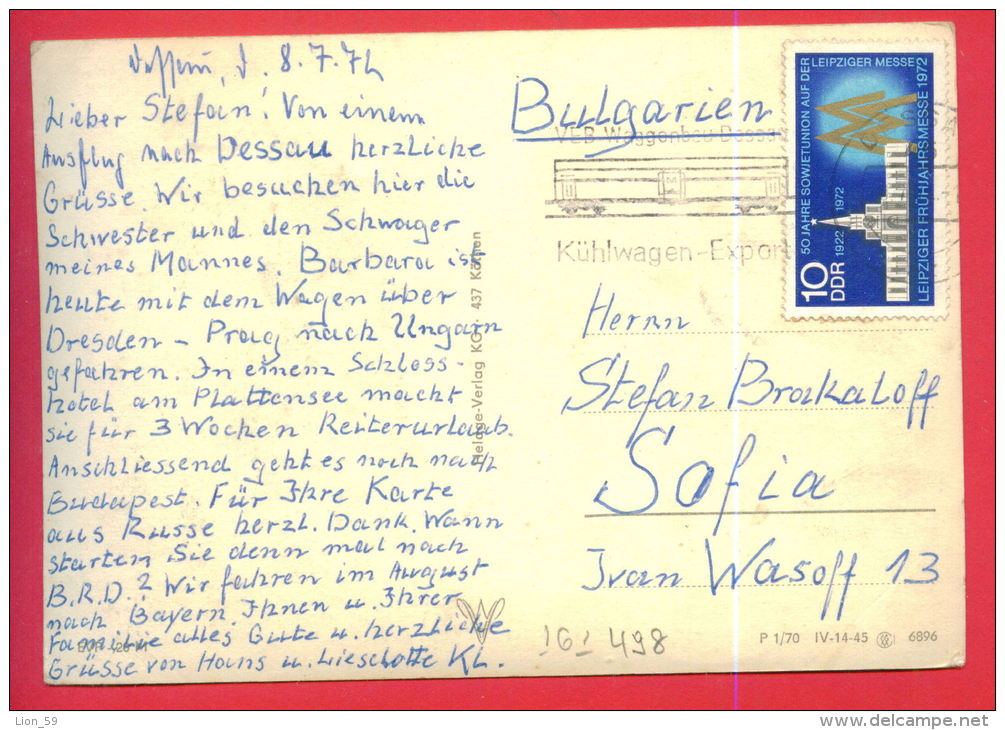 Dessau, d. 8.7.72
Lieber Stefan! Von einem
Ausflug nach Dessau herzliche
Grüsse. Wir besuchen hier die
Schwester und den Schwager
meines Mannes. Barbara ist
heute mit dem Wagen über
Dresden – Prag nach Ungarn
gefahren. In einem Schloss-
hotel am Plattensee macht
sie für 3 Wochen Reiterurlaub.
Anschliessend geht es noch nach
Budapest. Für Ihre Karte
aus Russe herzl. Dank. Wann
starten Sie denn mal nach
B.R.D.? Wir fahren im August
nach Bayern. Ihnen u. Ihrer
Familie alles Gute u. herzliche
Grüsse von Hans u. Lieselotte Kl.
Heldge-Verlag KG · 437 Köthen
Bulgarien
VEB Waggonbau Dessau
Kühlwagen-Export
50 JAHRE SOWJETUNION AUF DER LEIPZIGER MESSE
1922 1972
LEIPZIGER FRÜHJAHRSMESSE 1972
10
DDR
Herrn
Stefan Brakaloff
Sofia
Ivan Wasoff 13
161 498
P 1/70 IV-14-45 6896
Lion_59
http://www.delcampe.net